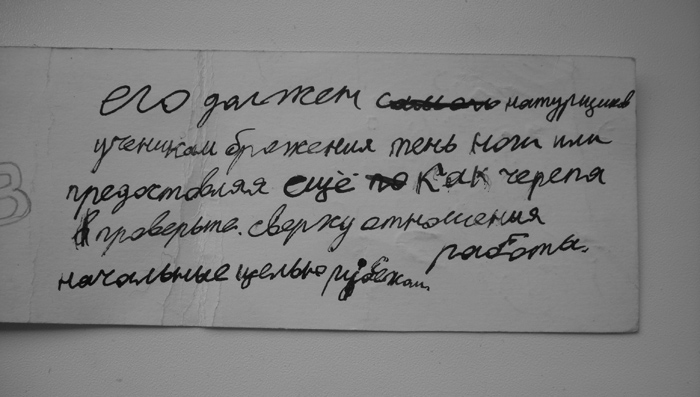 его должен натурщиков
ученикам бражения тень ноги или
предоставляя ещё как черепа
проверьте. сверху отношения
работы.
начальные целью рубежам.
В